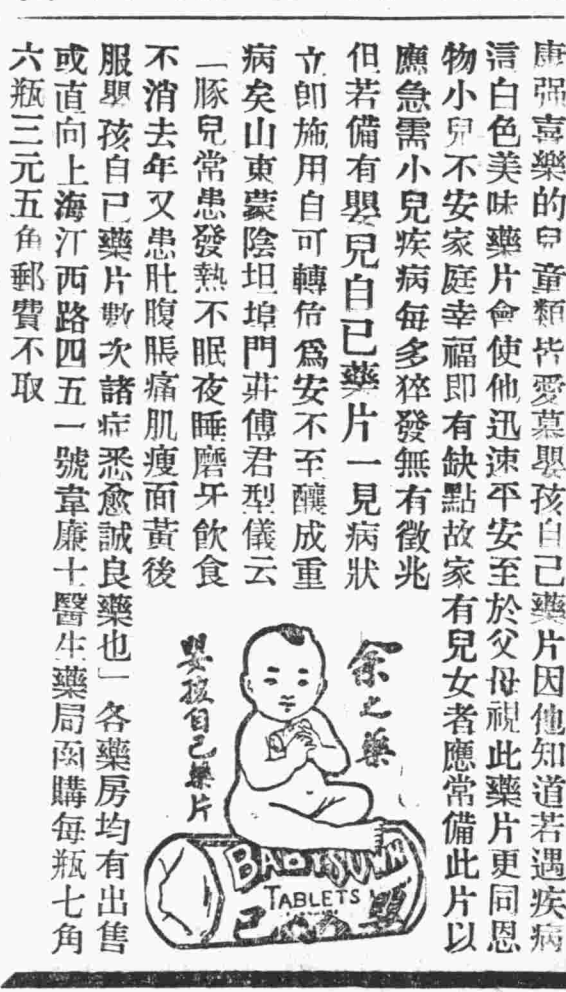 康强喜樂的兒童類皆愛慕嬰孩自己藥片因他知道若遇疾病
這白色美味藥片會使他迅速平安至於父母視此藥片更同恩
物小兒不安家庭幸福即有缺點故家有兒女者應常備此片以
應急需小兒疾病每多猝發無有徵兆
但若備有嬰兒自己藥片一見病狀
立卽施用自可轉危爲安不至釀成重
病矣山東蒙陰坦埠門莊傅君型儀云
「豚兒常患發熱不眠夜睡磨牙飲食
不消去年又患肚腹脹痛肌瘦面黃後
服嬰孩自己藥片數次諸症悉愈誠良藥也」各藥房均有出售
或直向上海江西路四五一號韋廉士醫生藥局函購每瓶七角
六瓶三元五角郵費不取
余之藥
嬰孩自己藥片
BABY'S OWN
TABLETS